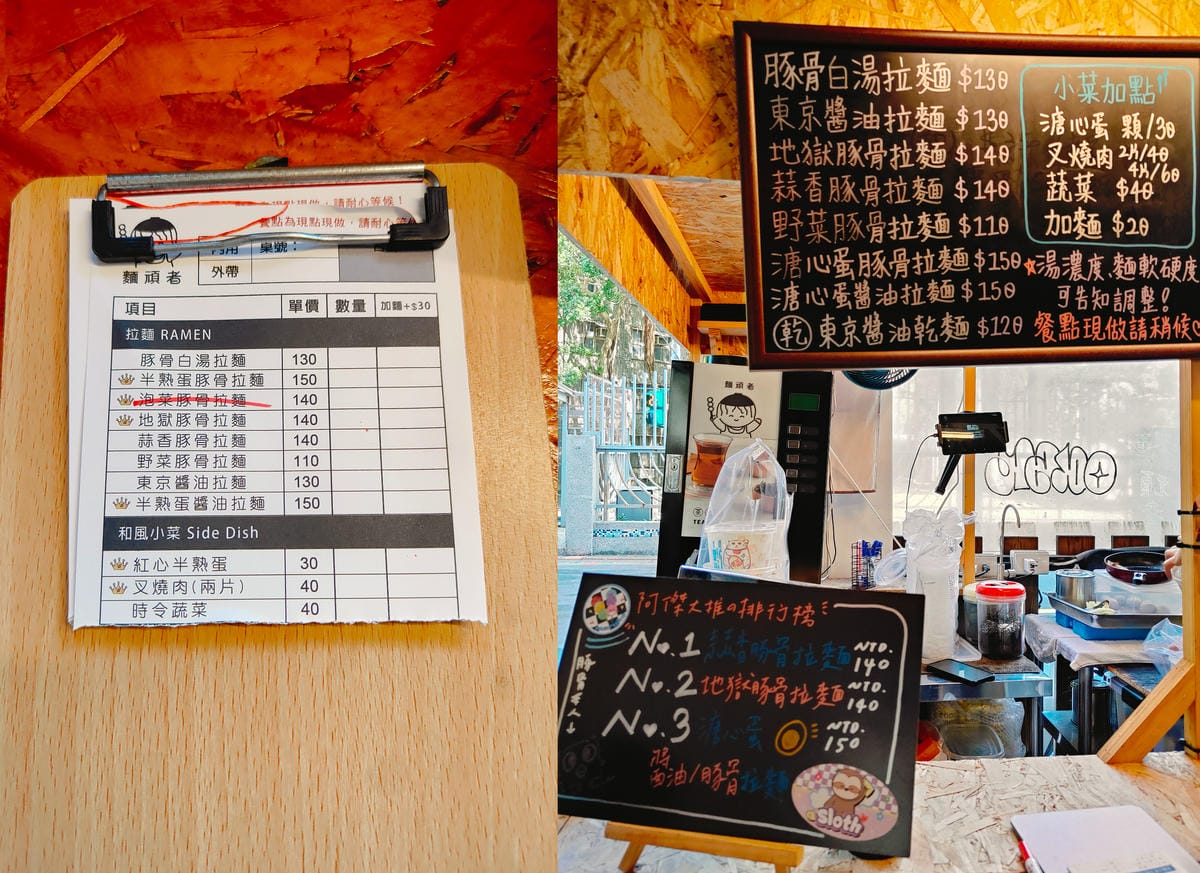 餐點為現點現做，請耐心等候！
麵頑者
內用 桌號：
外帶
項目 單價 數量 加麵+$30
拉麵 RAMEN
豚骨白湯拉麵 130
半熟蛋豚骨拉麵 150
泡菜豚骨拉麵 140
地獄豚骨拉麵 140
蒜香豚骨拉麵 140
野菜豚骨拉麵 110
東京醬油拉麵 130
半熟蛋醬油拉麵 150
和風小菜 Side Dish
紅心半熟蛋 30
叉燒肉(兩片) 40
時令蔬菜 40
豚骨白湯拉麵 $130
東京醬油拉麵 $130
地獄豚骨拉麵 $140
蒜香豚骨拉麵 $140
野菜豚骨拉麵 $110
溏心蛋豚骨拉麵 $150
溏心蛋醬油拉麵 $150
乾 東京醬油乾麵 $120
小菜加點
溏心蛋 顆/30
叉燒肉 2片/40
4片/60
蔬菜 $40
加麵 $20
湯濃度、麵軟硬度
可告知調整!
餐點現做請稍候
麵頑者
阿傑大推の排行榜
No.1 蒜香豚骨拉麵 NTD. 140
No.2 地獄豚骨拉麵 NTD. 140
No.3 溏心蛋 NTD. 150
醬油/豚骨拉麵
sloth